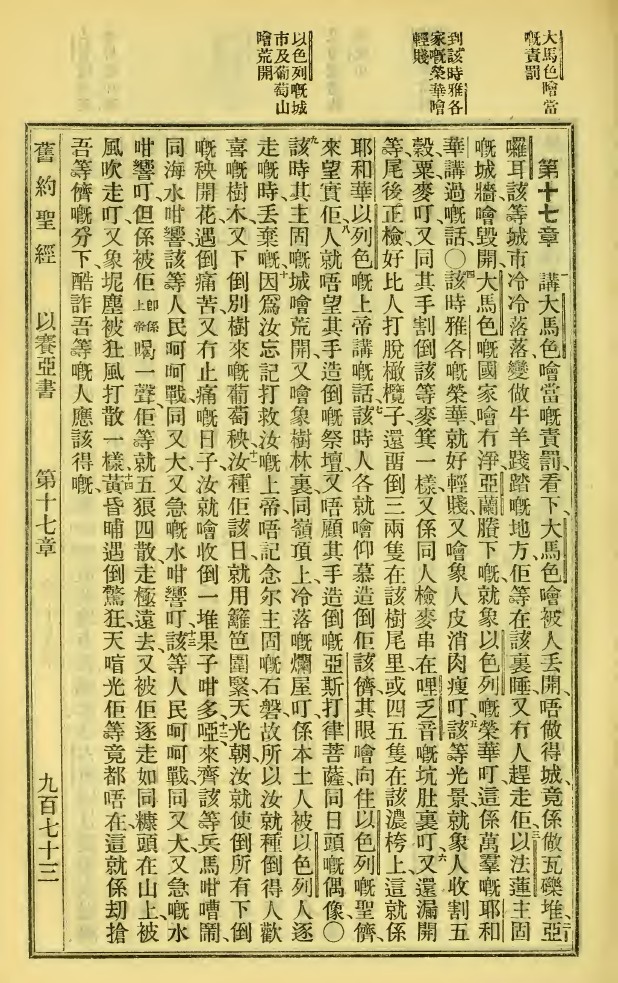 大馬色噲當
嘅責罰
到該時雅各
家嘅榮華噲
輕賤
以色列嘅城
市及葡萄山
噲荒開
第十七章 一講大馬色噲當嘅責罰、看下大馬色噲被人丢開、唔做得城、竟係做瓦礫堆、二亞
囉耳該等城市冷冷落落、變做牛羊踐踏嘅地方、佢等在該裏睡、又冇人趕走佢、三以法蓮主固
嘅城牆噲毀開、大馬色嘅國家噲冇淨、亞蘭賸下嘅就象以色列嘅榮華叮、這係萬羣嘅耶和
華講過嘅話〇四該時雅各嘅榮華就好輕賤、又噲象人皮消肉瘦叮、五該等光景就象人收割五
穀粟麥叮、又同其手割倒該等麥箕一樣、又係同人檢麥串在哩乏音嘅坑肚裏叮、六又還漏開
等尾後正檢、好比人打脫橄欖子、還畱倒三兩隻在該樹尾里、或四五隻在該濃桍上、這就係
耶和華以色列嘅上帝講嘅話、七該時人各就噲仰慕造倒佢該儕、其眼噲向住以色列嘅聖儕、
八來望實佢、人就唔望其手造倒嘅祭壇、又唔顧其手造倒嘅亞斯打律菩薩、同日頭嘅偶像、〇
九該時其主固嘅城噲荒開、又噲象樹林裏、同嶺頂上冷落嘅爛屋叮、係本土人被以色列人逐
走嘅時丢棄嘅、十因爲汝忘記打救汝嘅上帝、唔記念尔主固嘅石磐、故所以汝就種倒得人歡
喜嘅樹木、又下倒別樹來嘅葡萄秧、十一汝種佢該日、就用籬笆圍緊、天光朝、汝就使倒所有下倒
嘅秧開花、遇倒痛苦又冇止痛嘅日子、汝就噲收倒一堆果子咁多、十二啞來齊該等兵馬咁嘈鬧、
同海水咁響、該等人民呵呵戰、同又大又急嘅水咁響叮、十三該等人民呵呵戰、同又大又急嘅水
咁響叮、但係被佢卽係上帝喝一聲、佢等就五狼四散、走極遠去、又被佢逐走、如同糠頭在山上、被
風吹走叮、又象坭塵被狂風打散一樣、十四黃昏晡遇倒驚狂、天唷光佢等竟都唔在、這就係刧搶
吾等儕嘅分下、酷詐吾等嘅人應該得嘅、
舊約聖經 以賽亞書 第十七章 九百七十三